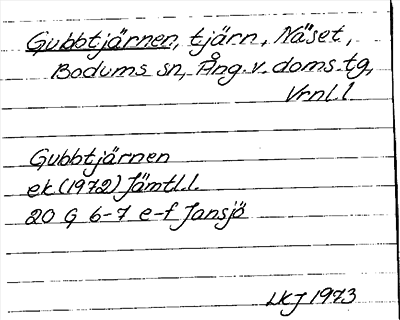 Gubbtjärnen, tjärn, Näset,
Bodums sn, Ång. v. doms. tg,
Vrnl. l
Gubbtjärnen
ek (1972) Jämtl. l.
20 G 6-7 e-f Jansjö
LKJ 1973